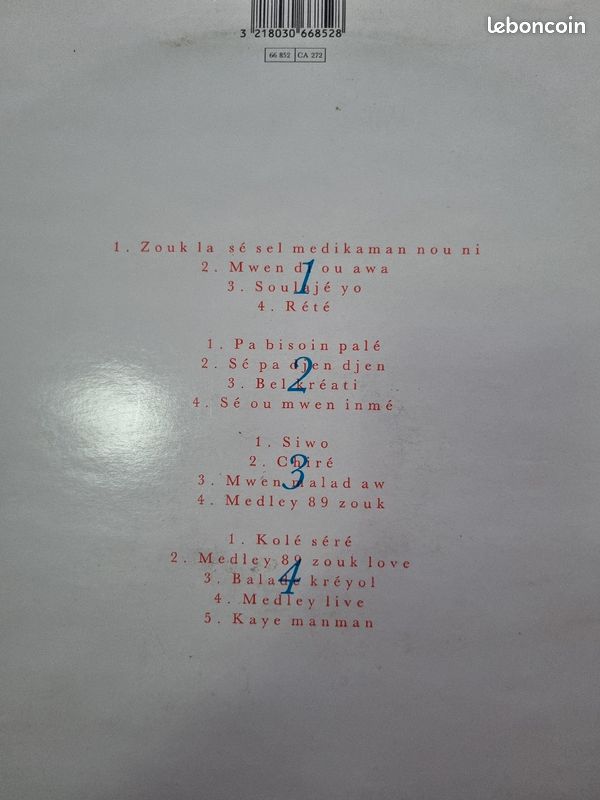 leboncoin
3 218030 668528
66 852 CA 272
1. Zouk la sé sel medikaman nou ni
2. Mwen di ou awa
3. Soulajé yo
4. Rété
1
1. Pa bisoin palé
2. Sé pa djen djen
3. Bel kréati
4. Sé ou mwen inmé
2
1. Siwo
2. Chiré
3. Mwen malad aw
4. Medley 89 zouk
3
1. Kolé séré
2. Medley 89 zouk love
3. Balade kréyol
4. Medley live
5. Kaye manman
4